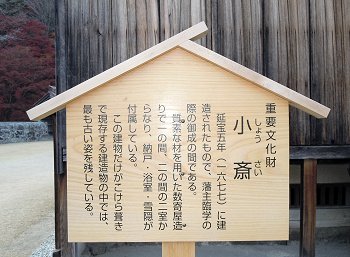 重要文化財
小斎
しょうさい
延宝五年（一六七七）に建
造されたもので、藩主臨学の
際の御成の間である。
質素な材を用いた数寄屋造
りで一の間、二の間の二室か
らなり、納戸・浴室・雪隠が
付属している。
この建物だけがこけら葺き
で現存する建造物の中では、
最も古い姿を残している。